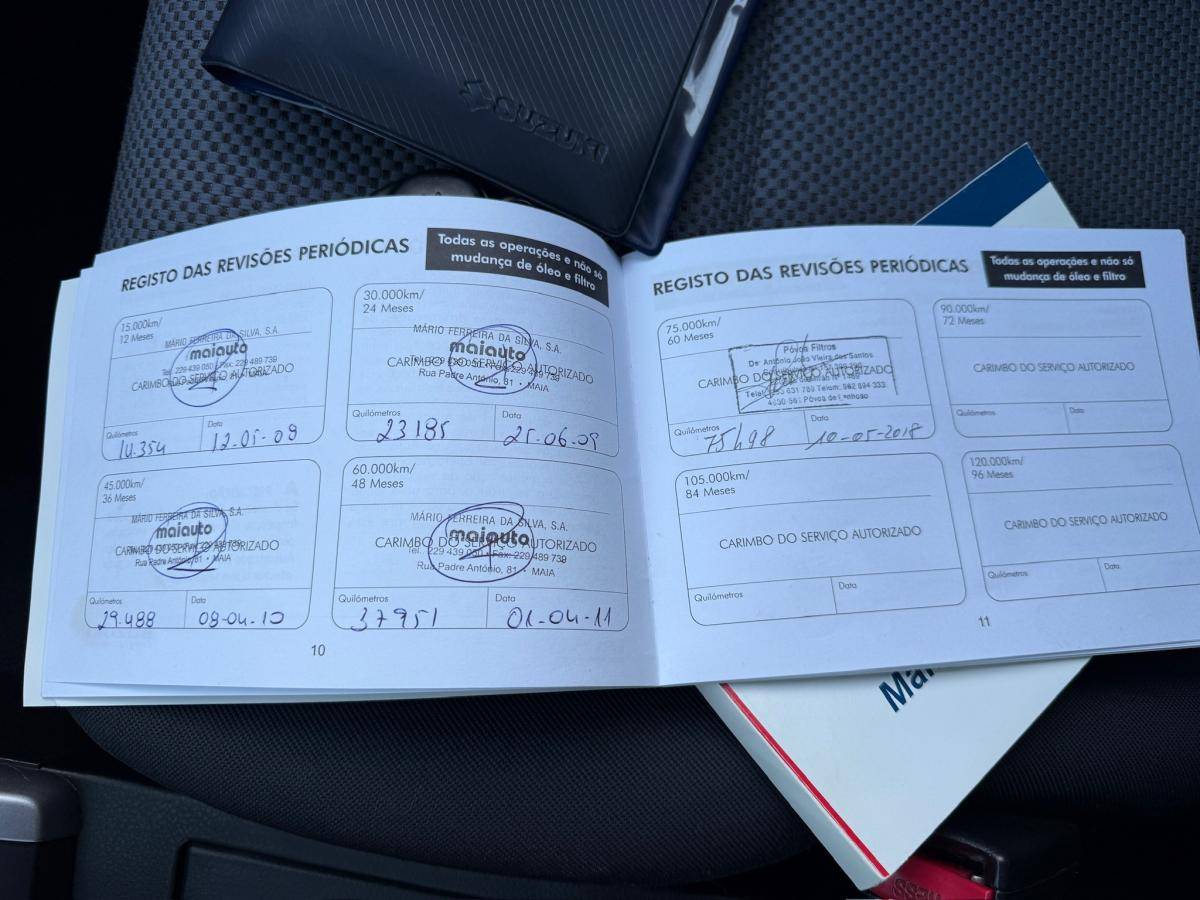 SUZUKI
REGISTO DAS REVISÕES PERIÓDICAS
Todas as operações e não só
mudança de óleo e filtro
15.000km/
12 Meses
MÁRIO FERREIRA DA SILVA, S.A.
maiauto
Tel. 229 439 050 Fax: 229 489 739
CARIMBO DO SERVIÇO AUTORIZADO
MAIA
Quilómetros
Data
14.354
12-05-09
30.000km/
24 Meses
MÁRIO FERREIRA DA SILVA, S.A.
maiauto
CARIMBO DO SERVIÇO AUTORIZADO
Rua Padre António, 81 • MAIA
Quilómetros
Data
23185
25-06-09
45.000km/
36 Meses
MÁRIO FERREIRA DA SILVA, S.A.
maiauto
CARIMBO DO SERVIÇO AUTORIZADO
Rua Padre António, 81 • MAIA
Quilómetros
Data
29.488
08-04-10
60.000km/
48 Meses
MÁRIO FERREIRA DA SILVA, S.A.
maiauto
CARIMBO DO SERVIÇO AUTORIZADO
Tel. 229 439 050 Fax: 229 489 739
Rua Padre António, 81 • MAIA
Quilómetros
Data
37951
01-04-11
10
REGISTO DAS REVISÕES PERIÓDICAS
Todas as operações e não só
mudança de óleo e filtro
75.000km/
60 Meses
Póvoa Filtros
De António João Vieira dos Santos
CARIMBO DO SERVIÇO AUTORIZADO
631 789 Telem: 962 894 333
Póvoa de Lanhoso
Quilómetros
Data
75498
10-05-2018
90.000km/
72 Meses
CARIMBO DO SERVIÇO AUTORIZADO
Quilómetros
Data
105.000km/
84 Meses
CARIMBO DO SERVIÇO AUTORIZADO
Quilómetros
Data
120.000km/
96 Meses
CARIMBO DO SERVIÇO AUTORIZADO
Quilómetros
Data
11
Ma
PRESS